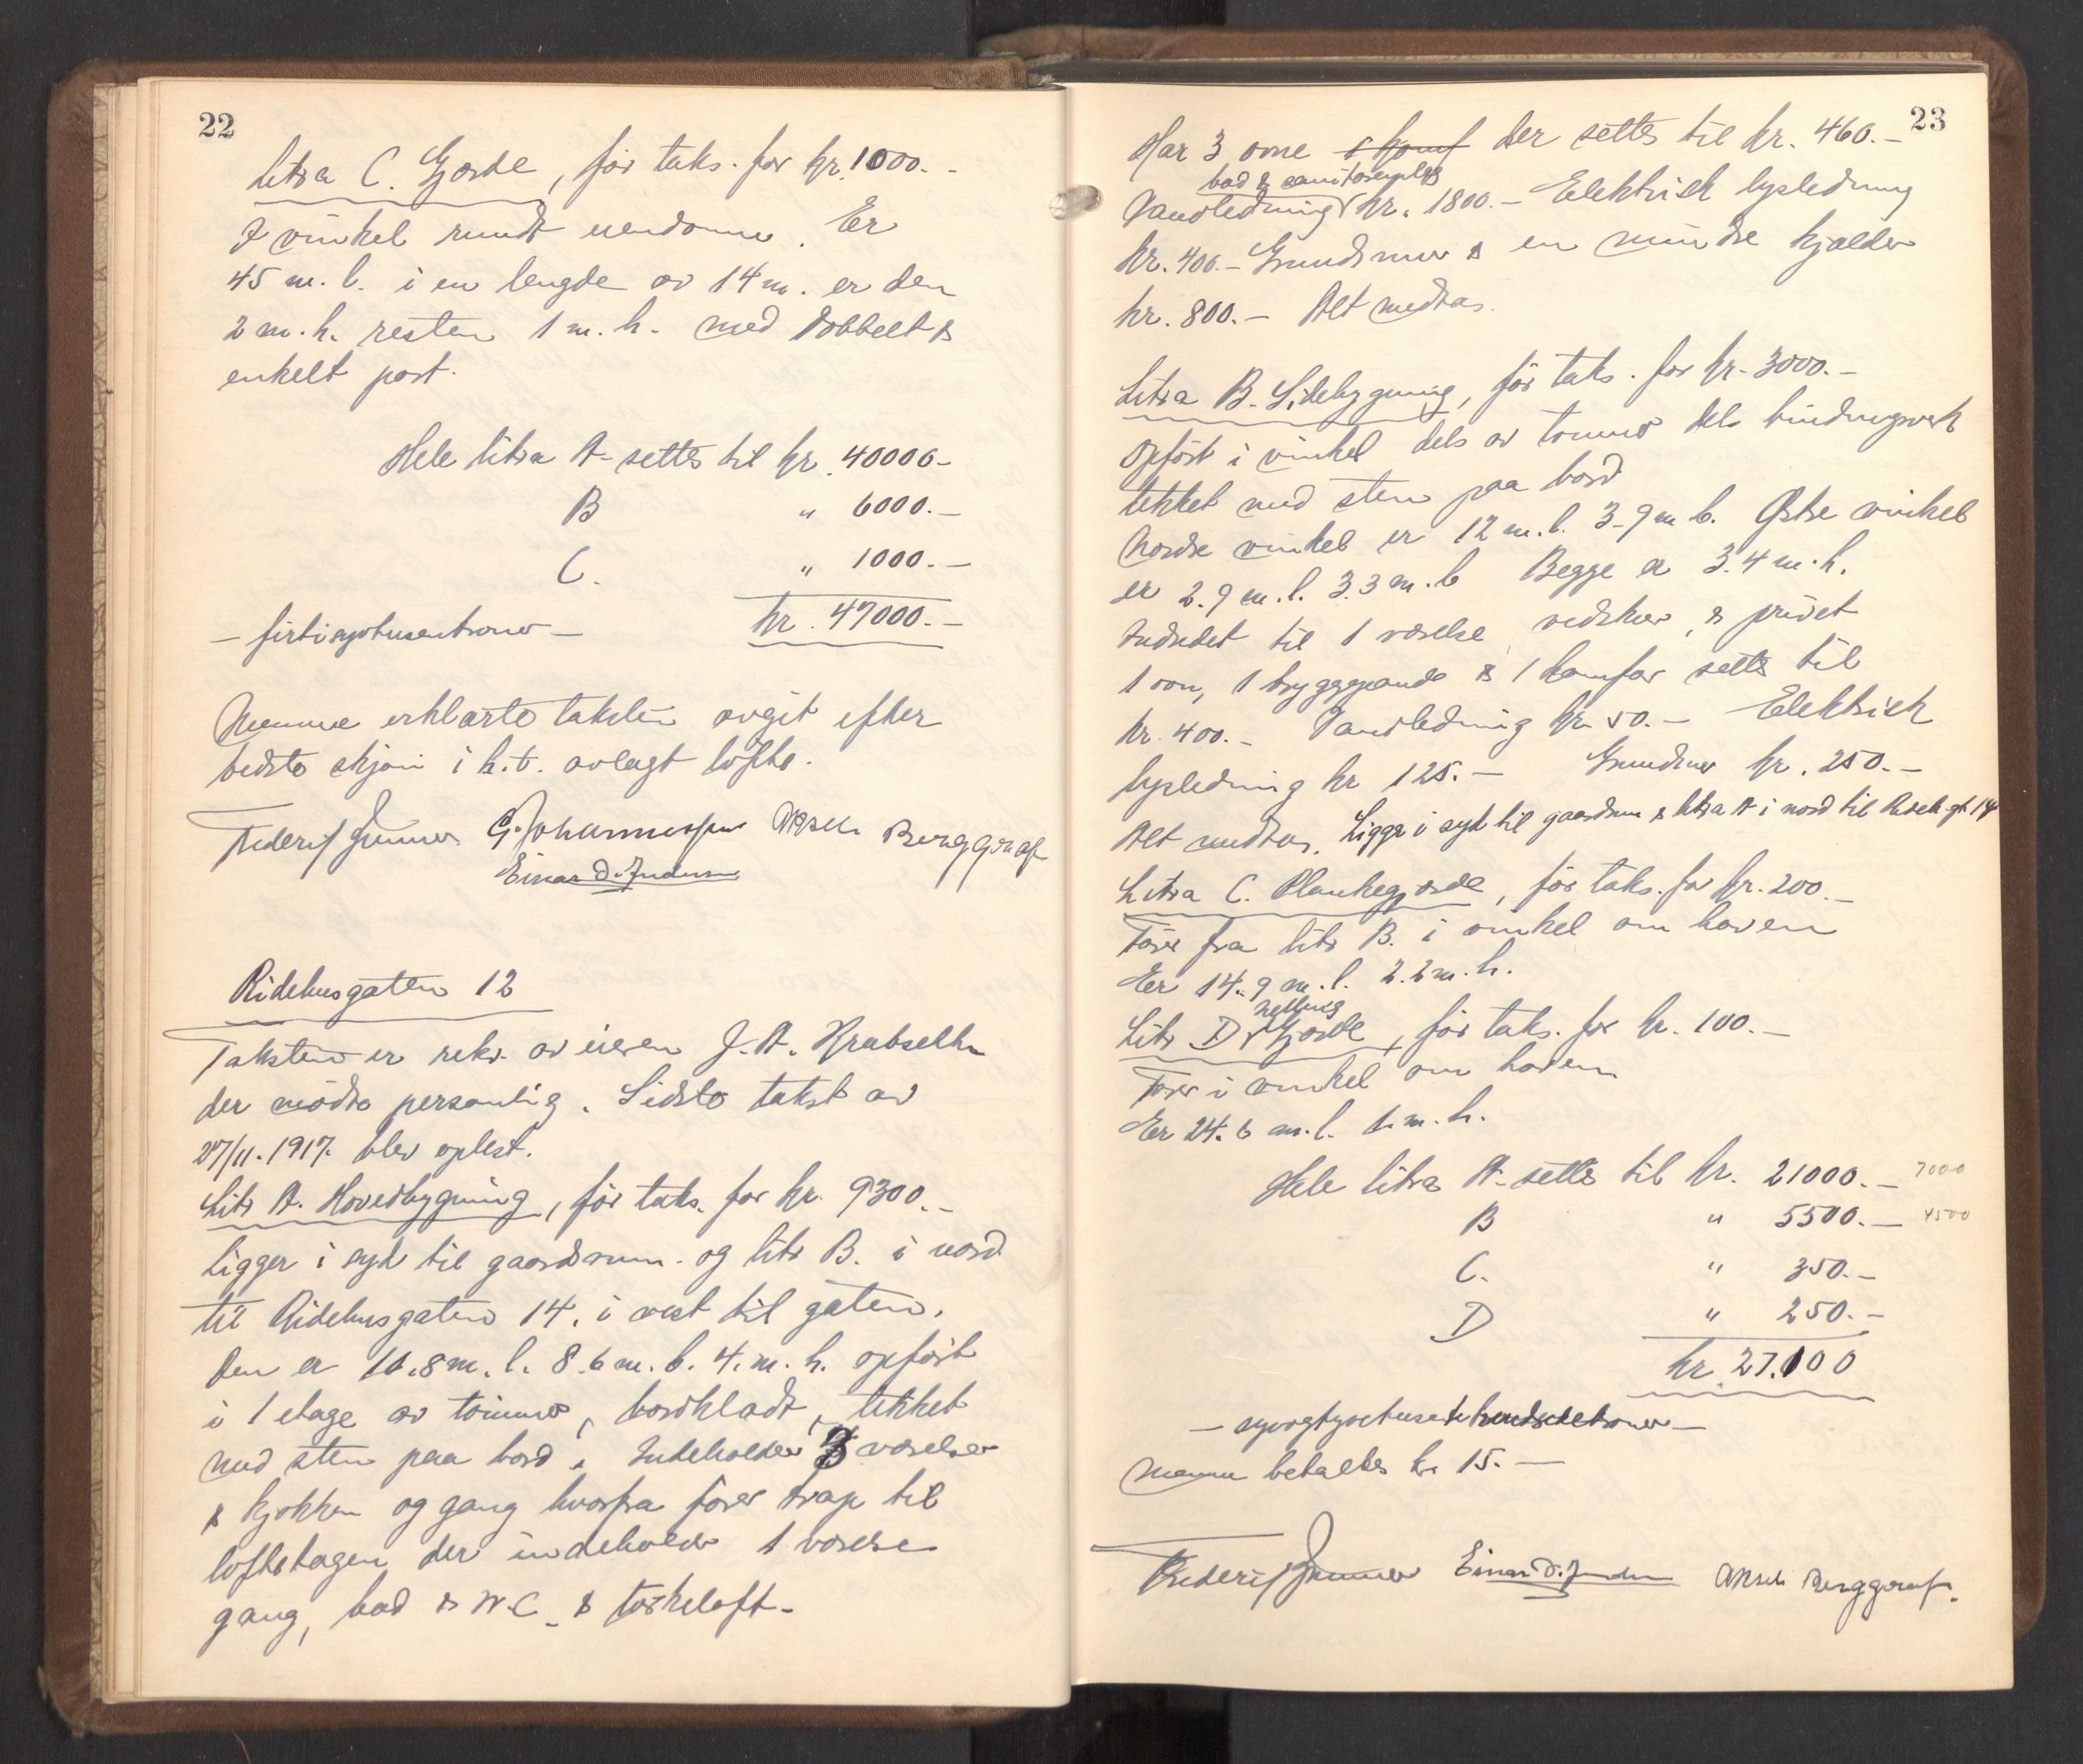 22
Litra C. Gjærde, før taks. for kr. 1000.-
I vinkel rundt eiendomme. Er
45 m. l. i en lengde av 14 m. er den
2 m. h. resten 1 m. h. med dobbelt &
enkelt port.
Hele litra A. settes til kr. 40000-
B " 6000.-
C. " 1000.-
- firtisyvtusenkroner - kr. 47000.-
Mennene erklærte taksten avgit efter
bedste skjøn i h.t. avlagt løfte.
G. Johannessen Aksel Berggraf
Einar D.
Ridehusgaten 12
Taksten er rekv. av eieren J. A.
der mødte personlig. Sidste takst av
27/11. 1917. blev oplest.
Litr A. Hovedbygning, før taks. for kr. 9300.-
Ligger i syd til gaardsrum. og litr B. i nord
til Ridehusgaten 14. i vest til gaten.
Den er 10.8 m. l. 8.6 m. b. 4. m. h. opført
i 1 etage av tømmer, bordklædt, tekket
med sten paa bord. Indeholder 3 værelser
& kjøkken og gang hvorfra fører trap til
loftetagen der indeholder 1 værelse
gang, bad & W.C. & tørkeloft.-
23
Har 3 ovne der settes til kr. 460.-
bad & sanitæranlæg
Vandledning kr. 1800.- Elektrisk lysledning
kr. 400.- Grundmur & en mindre kjælder
kr. 800.- Alt medtas.
Litra B. Sidebygning, før taks. for kr. 3000.-
Opført i vinkel dels av tømmer dels bindingsverk
tekket med sten paa bord
Nordre vinkel er 12 m. l. 3.9 m b. Østre vinkel
er 2.9 m. l. 3.3 m. b Begge er 3.4 m. h.
Indredet til 1 værelse, vedskur, & privet
1 ovn, 1 bryggepande & 1 komfor settes til
kr. 400.- Vandledning kr. 50.- Elektrisk
lysledning kr 125.- Grundmur kr. 250.-
Alt medtas. Ligger i syd til gaardsrum & litra A i nord til Rideh. gt 14
Litra C. Plankegjærde, før taks. for kr. 200.-
Fører fra litr B. i vinkel om haven
Er 14.9 m. l. 2.2 m. h.
netting
Litr D Gjærde, før taks. for kr. 100.-
Fører i vinkel om haven
Er 24.6 m. l. 1. m. h.
Hele litra A. settes til kr. 21000.- 7000
B " 5500.- 4500
C. " 350.-
D " 250.-
kr. 27.100
- syvogtyvetusenethundredekroner -
Mennene betaltes kr 15.-
Einar D. Aksel Berggraf.